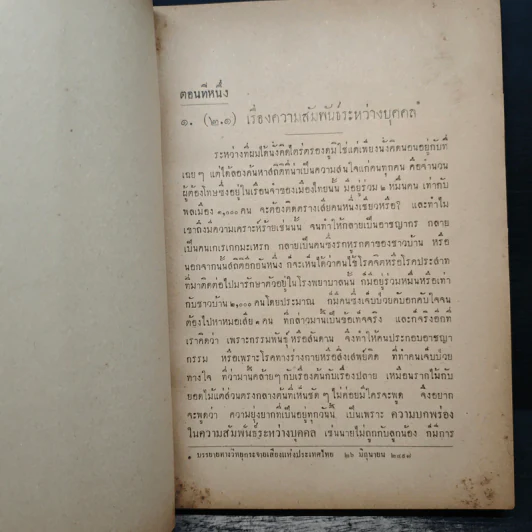 ตอนที่หนึ่ง
๑. (๒.๑) เรื่องความสัมพันธ์ระหว่างบุคคล
ระหว่างที่ผมได้นั่งคิดใคร่ครองดูมิใช่แต่เพียงนั่งคิดนอนอยู่กับที่
เฉยๆ แต่ได้ลองค้นหาสถิติที่น่าเป็นความสนใจแก่คนทุกคน คือจำนวน
ผู้ต้องโทษซึ่งอยู่ในเรือนจำของเมืองไทยนั้น มีอยู่ร่วม ๒ หมื่นคน เท่ากับ
พลเมือง ๑,๐๐๐ คน จะต้องติดตรางเสียคนหนึ่งเชียวหรือ? และทำไม
เขาถึงมีความเคราะห์ร้ายเช่นนั้น จนทำให้กลายเป็นอาชญากร กลาย
เป็นคนเกเรเกกมะเหรก กลายเป็นคนซึ่งรกหูรกตาของชาวบ้าน หรือ
นอกจากนั้นสถิติอีกอันหนึ่ง ก็จะเห็นได้ว่าคนไข้โรคจิตหรือโรคประสาท
ที่มาติดต่อไปมารักษาตัวอยู่ในโรงพยาบาลนั้น ก็มีอยู่ร่วมหมื่นหรือเท่า
กับชาวบ้าน ๒,๐๐๐ คนโดยประมาณ ก็มีคนซึ่งเจ็บป่วยคับอกคับใจจน
ต้องไปหาหมอเสีย ๑ คน ที่กล่าวมานั้นเป็นข้อเท็จจริง และก็จริงอีกที่
เราคิดว่า เพราะกรรมพันธุ์หรือสันดาน จึงทำให้คนประกอบอาชญา
กรรม หรือเพราะโรคทางร่างกายหรือสิ่งเสพย์ติด ที่ทำคนเจ็บป่วย
ทางใจ ที่ว่ามานี้คล้ายๆ กับเรื่องต้นกับเรื่องปลาย เหมือนรากไม้กับ
ยอดไม้แต่ส่วนตรงกลางคนที่เห็นชัด ๆ ไม่ค่อยมีใครจะพูด จึงอยาก
จะพูดว่า ความยุ่งยากที่เป็นอยู่ทุกวันนี้ เป็นเพราะ ความบกพร่อง
ในความสัมพันธ์ระหว่างบุคคล เช่นนายไม่ถูกกับลูกน้อง ก็มีการ
๑ บรรยายทางวิทยุกระจายเสียงแห่งประเทศไทย ๒๖ มิถุนายน ๒๔๙๗